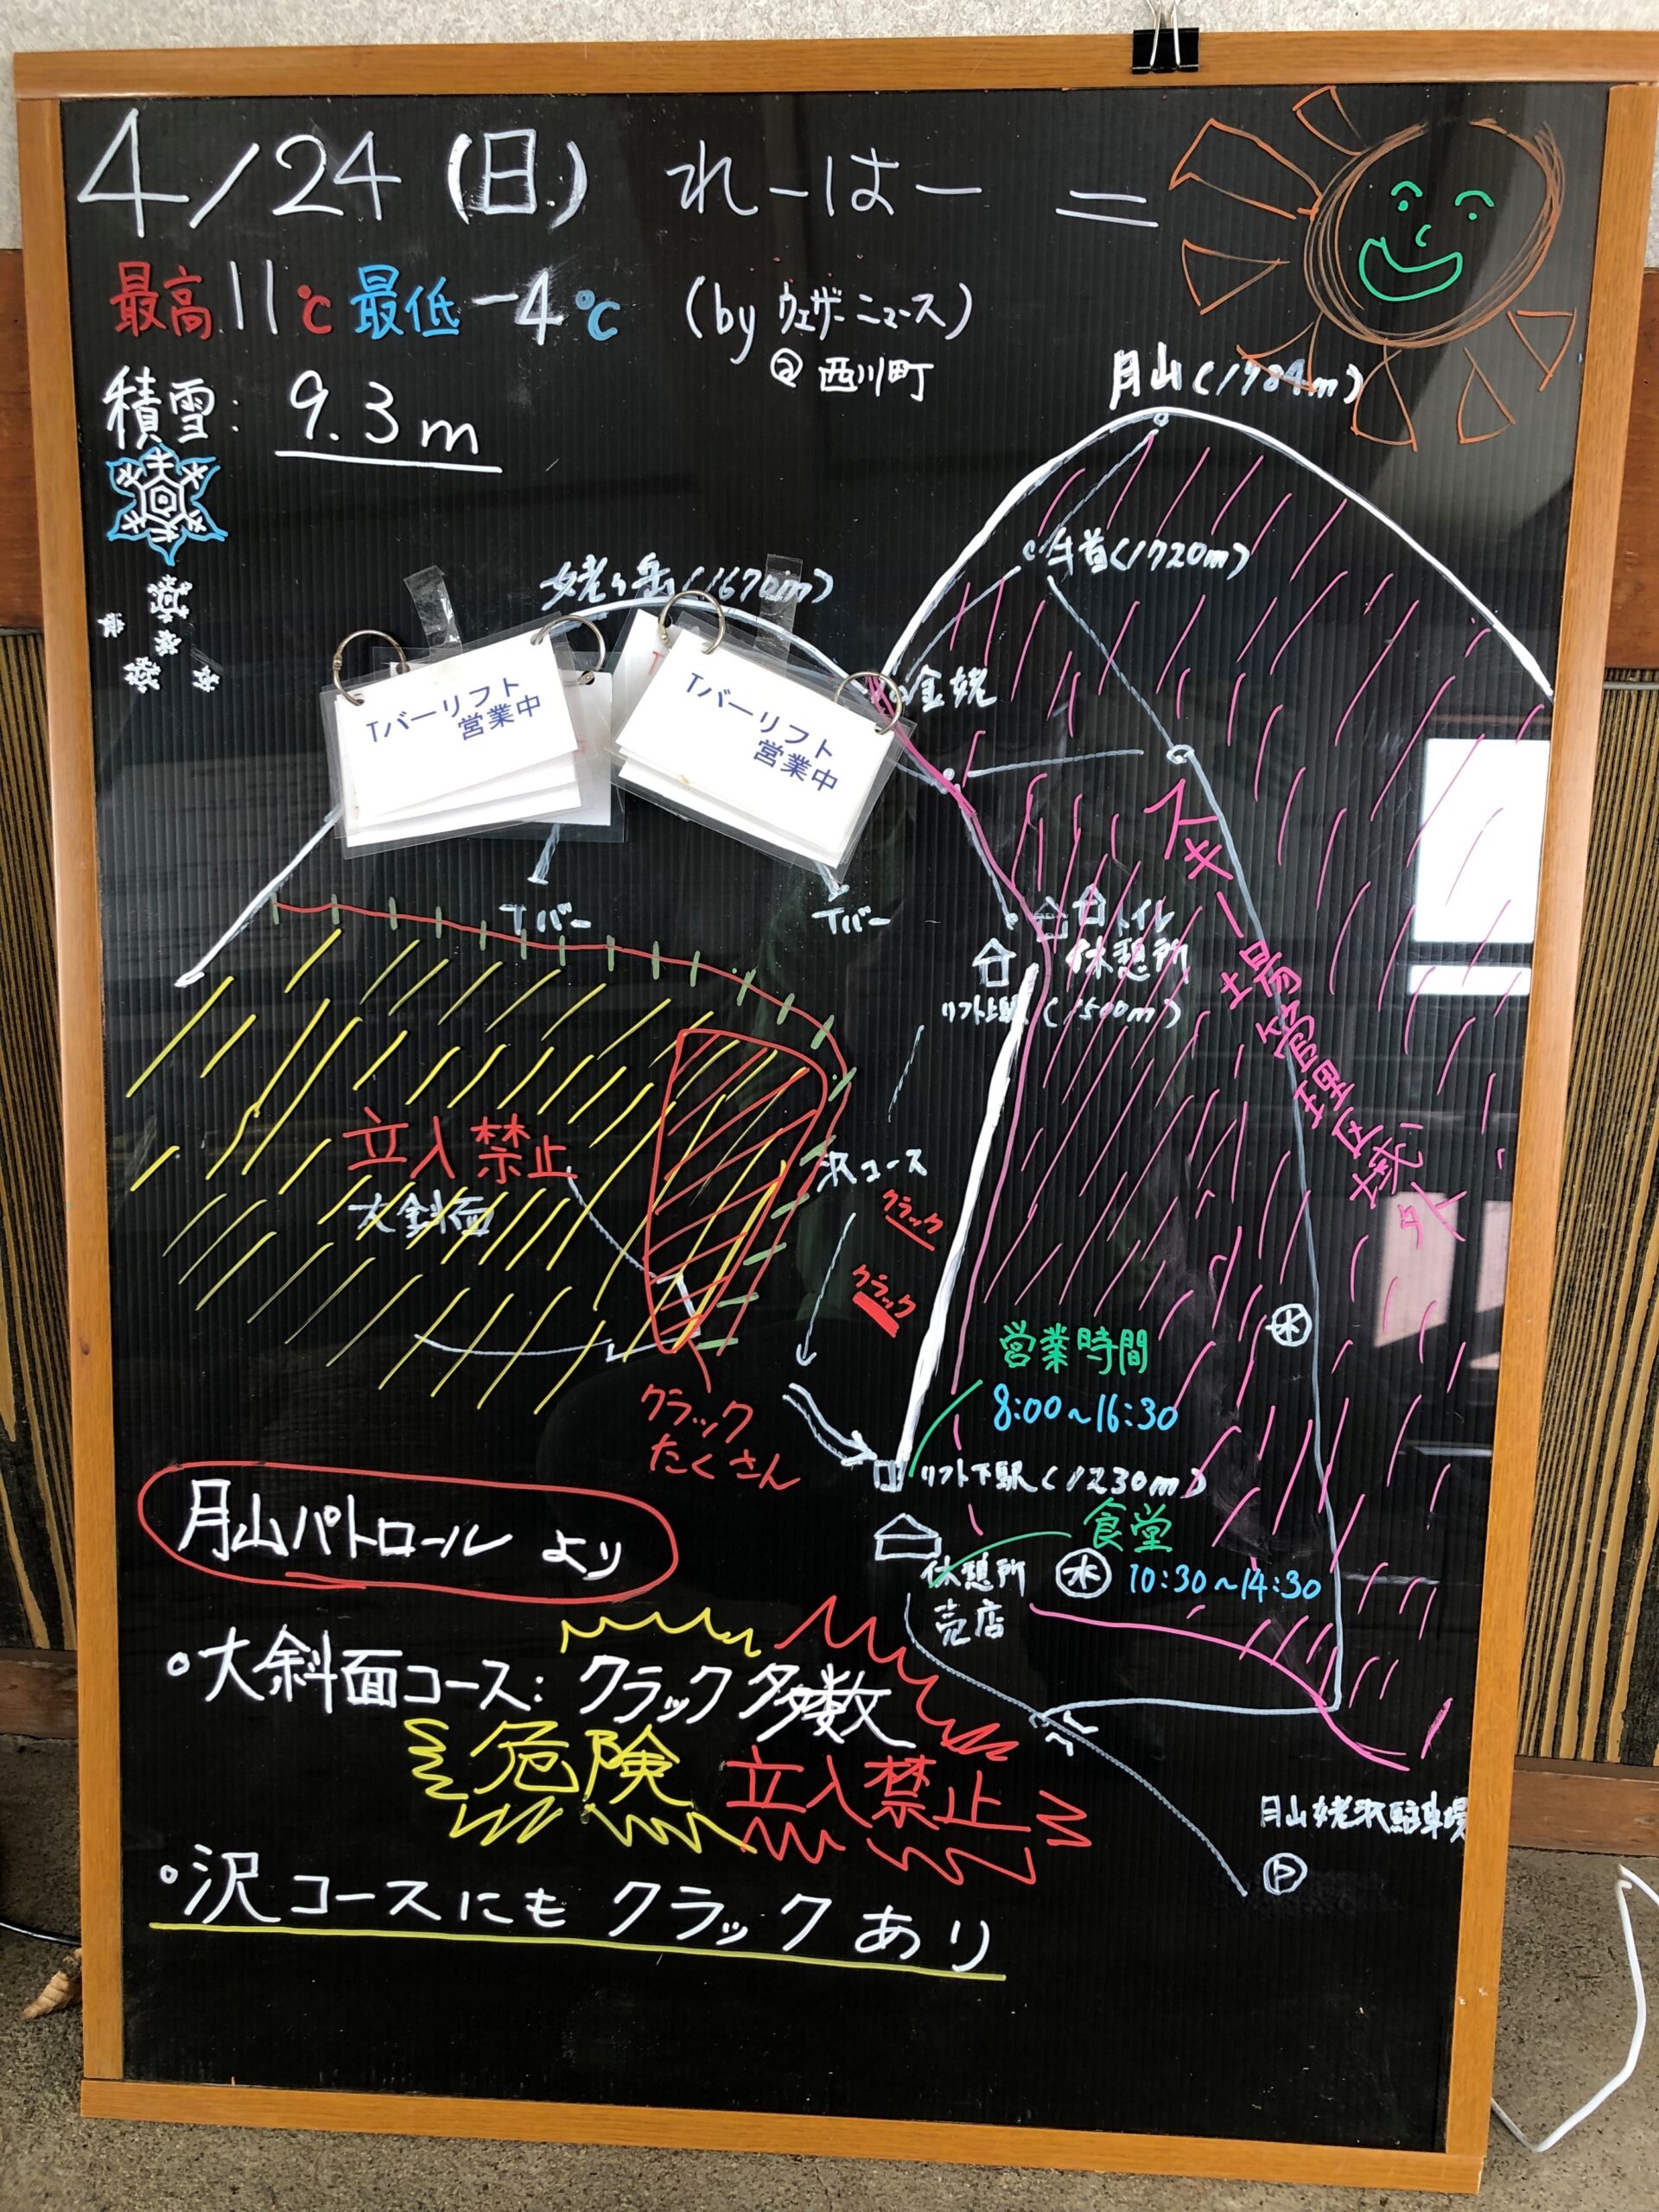 4/24(日) れーはー =
最高11℃ 最低-4℃ (by ウェザーニュース)
@西川町
積雪: 9.3m
月山(1984m)
牛首(1720m)
姥ヶ岳(1670m)
金姥
Tバーリフト
営業中
Tバーリフト
営業中
Tバー
Tバー
トイレ
休憩所
リフト上駅(1500m)
スキー場管理区域外
立入禁止
大斜面
沢コース
クラック
クラック
水
営業時間
8:00~16:30
クラック
たくさん
リフト下駅(1230m)
食堂
休憩所 水 10:30~14:30
売店
月山パトロールより
・大斜面コース: クラック多数
危険 立入禁止
月山姥沢駐車場
P
・沢コースにもクラックあり